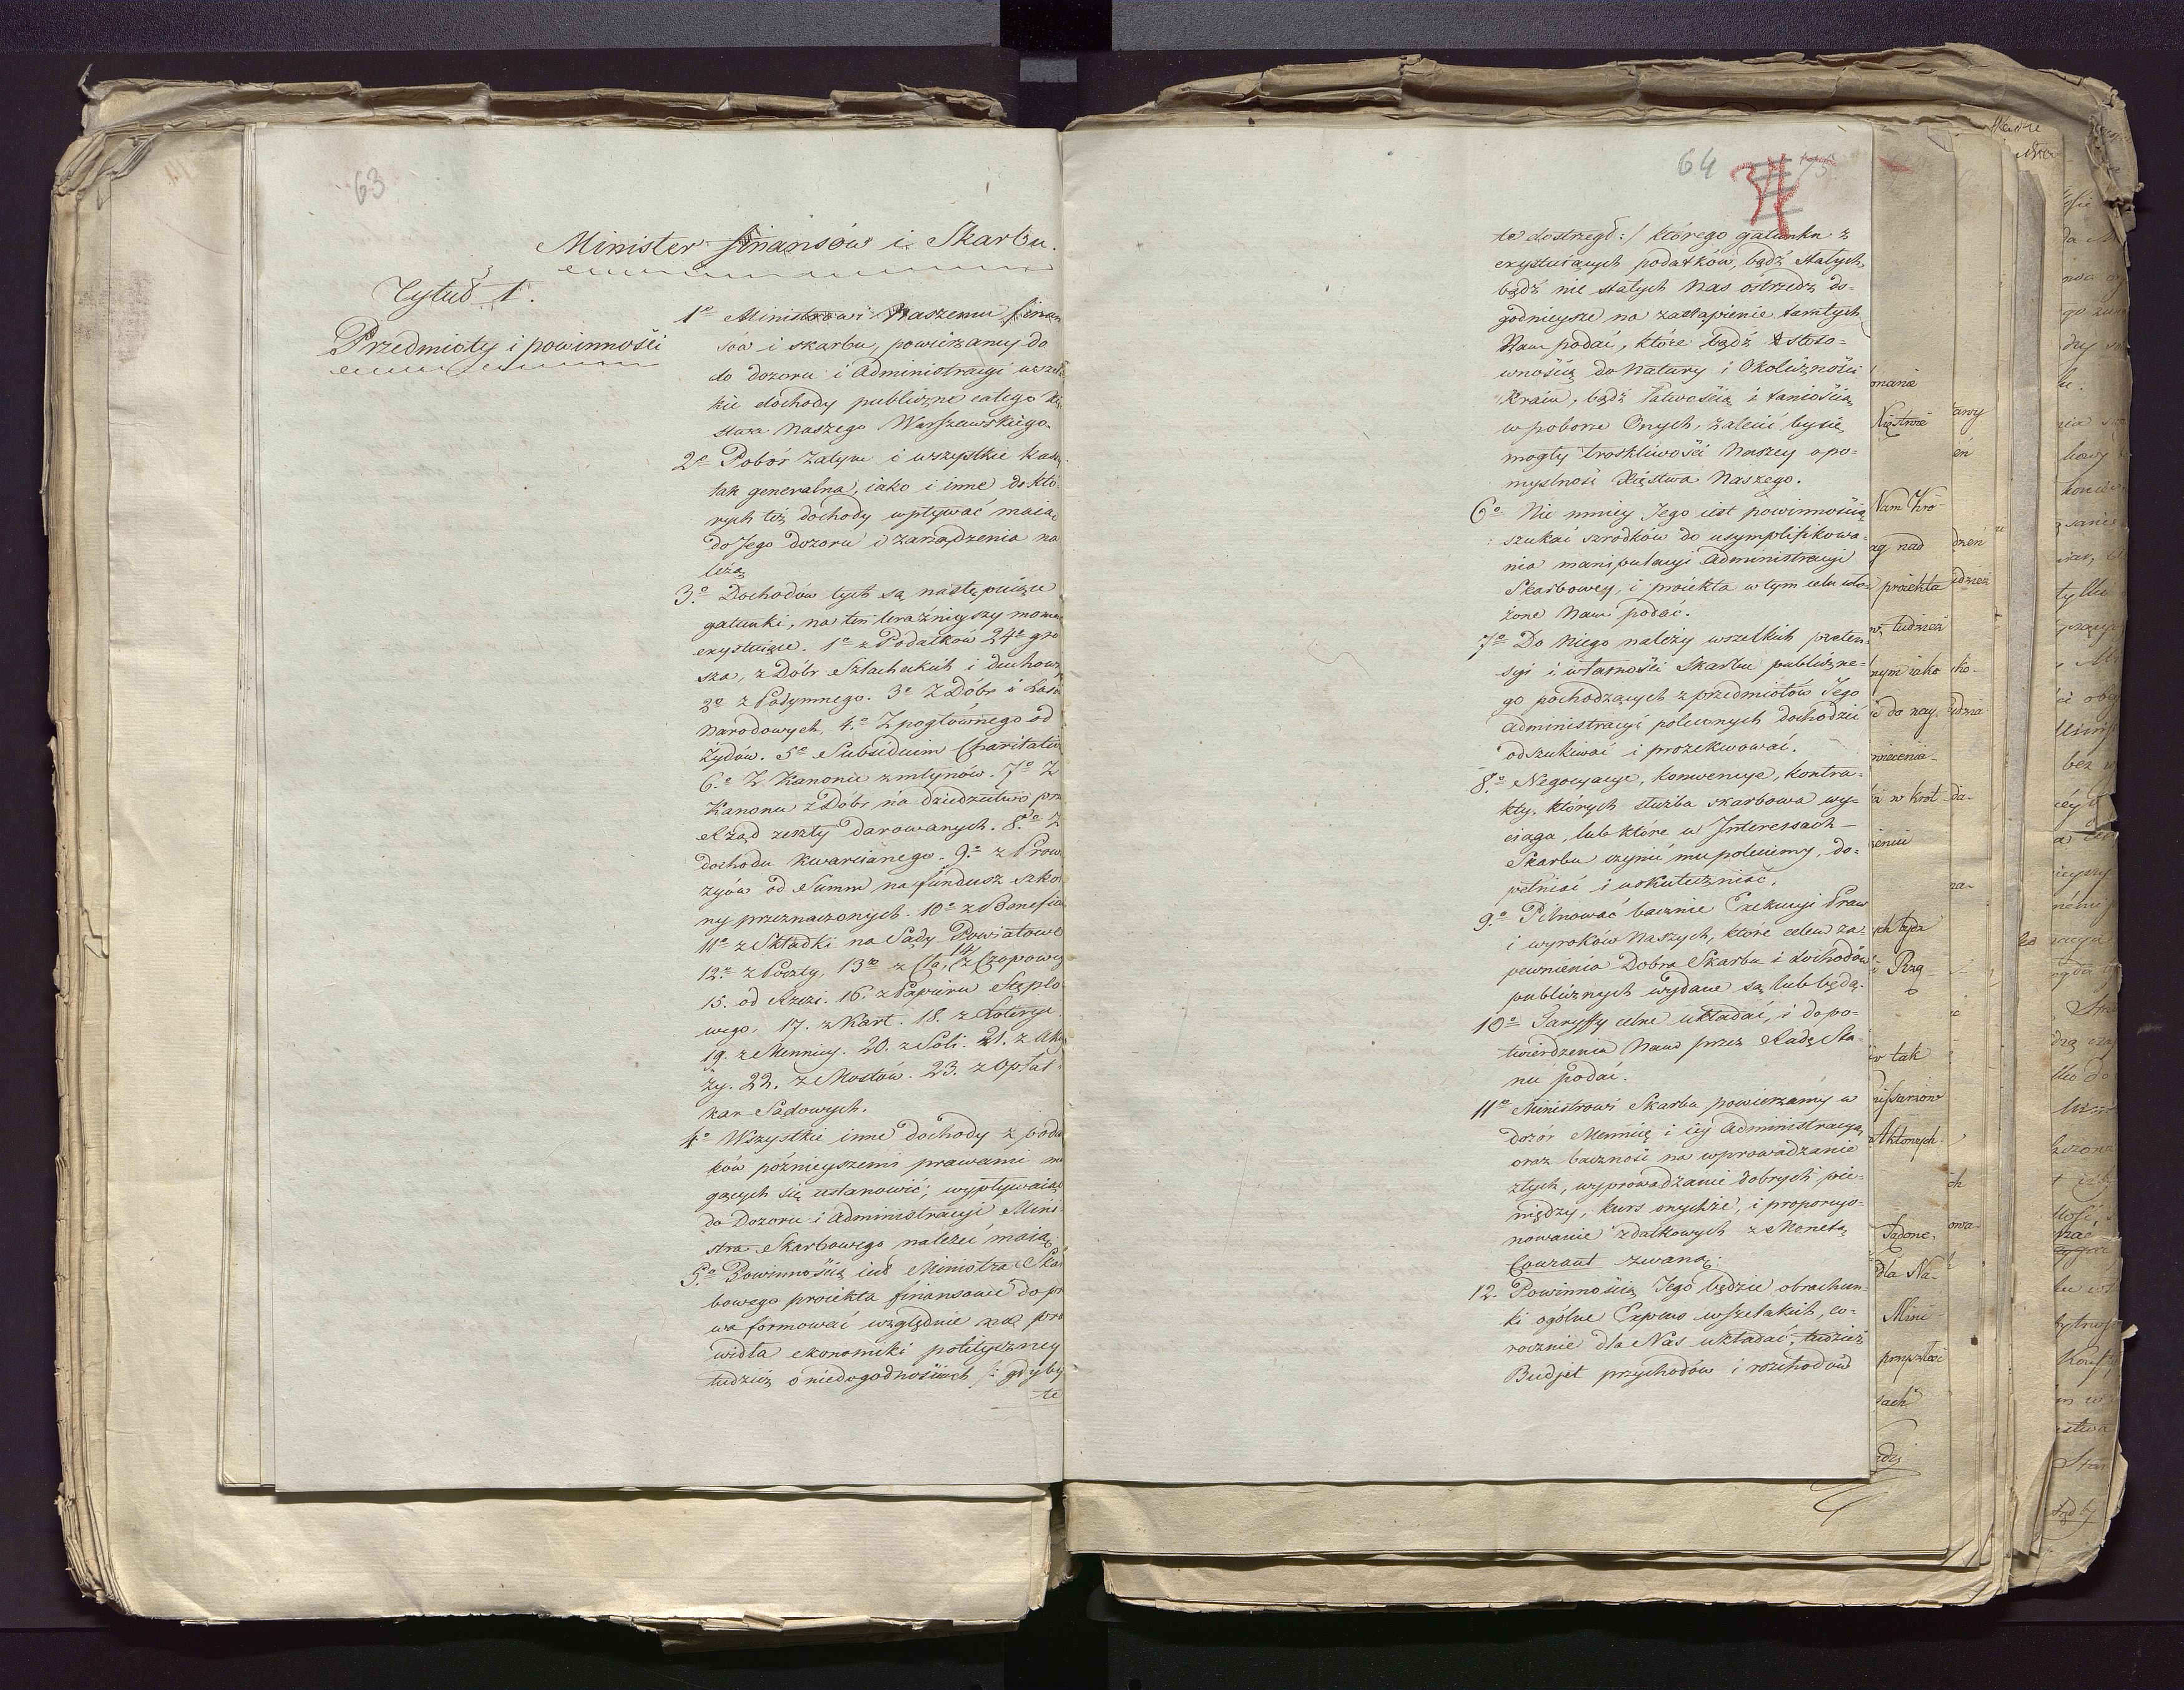 63
Minister finansów i Skarbu.
Tytuł 1.
Przedmioty i powinności
1o Ministrowi Naszemu finan
sów i skarbu, powierzamy do
do dozoru i Administracyi wszel
kie dochody publiczne całego Xię
stwa Naszego Warszawskiego.
2o Pobór zatym i wszystkie Kassy
tak generalna, iako i inne do któ
rych też dochody wpływać maią
do Jego dozoru i zarządzenia na
leżą
3o Dochodów tych są następuiące
gatunki, na ten teraźnieyszy momen
exystuiące. 1o z Podatków 24o gro
sza, z Dóbr Szlacheckich i duchown
2o z Podymnego. 3o Z Dóbr i Lasów
Narodowych, 4o Z pogłównego od
Żydów. 5o Subsidium Charitativ
6o Z Kanonu z młynów. 7o Z
Kanonu z Dóbr na dziedzictwo prz
Rząd zeszły darowanych. 8o Z
dochodu Kwarcianego. 9o z Prow
zyów od Summ na fundusz szkol
ny przeznaczonych. 10o z Benefic
11o z Składki na Sądy Powiatowe
12o z Poczty, 13o z Cła, 14 z Czopowe
15. od Rzezi. 16. z Papieru Stęplo
wego, 17. z Kart. 18. z Loteryi.
19. z Mennicy. 20. z Soli. 21. z Akcy
zy. 22. z Mostów. 23. z Opłat
kar Sądowych.
4o Wszystkie inne dochody z poda
ków poźnieyszemi prawami mo
gących się ustanowić, wypływaiące
do Dozoru i Administracyi Mini
stra Skarbowego należeć maią.
5o Powinnością iest Ministra Skar
bowego proiekta finansowe do pr
wa formować względnie na pra
widła ekonomiki polityczney
tudzież o niedogodnościach /: gdyby
te
64
te dostrzegł :/ którego gatunku z
exystuiących podatków, bądź stałych,
bądź nie stałych Nas ostrzedz do-
godnieysze na zastąpienie tamtych
Nam podać, które bądź stoso-
wnością do Natury i Okoliczności
Kraiu, bądź łatwością i taniością
w poborze Onych, zalecić by się
mogły troskliwości Naszey o po-
myślność Xięstwa Naszego.
6o Nie mniey Jego iest powinnością
szukać szrodków do usymplifikowa-
nia manipulacyi Administracyi
Skarbowey, i proiekta w tym celu uło-
żone Nam podać.
7o Do Niego należy wszelkich preten-
syi i własności Skarbu publiczne-
go pochodzących z przedmiotów Jego
administracyi poleconych dochodzić
odszukiwać i prozekwować.
8o Negocyacye, konwencye, kontra-
kty, których służba skarbowa wy-
ciąga, lub które w Interessach
Skarbu czynić mu polecimy, do-
pełniać i uskuteczniać.
9o Pilnować bacznie Exekucyi Praw
i wyroków Naszych, które celem za-
pewnienia Dobra Skarbu i dochodów
publicznych wydane są lub będą.
10o Taryffy celne układać, i do po-
twierdzenia Nam przez Radę Sta-
nu podać.
11o Ministrowi Skarbu powierzamy w
dozór Mennicę i iey Administracyą,
oraz baczność na wprowadzanie
złych, wyprowadzanie dobrych pie-
niędzy, kurs onychże, i proporcyo-
nowanie zdatkowych z Monetą
Courant zwaną.
12. Powinnością Jego będzie obrachun-
ki ogólne Expens wszelakich, co-
rocznie dla Nas układać, tudzież
Budjet przychodów i rozchodów